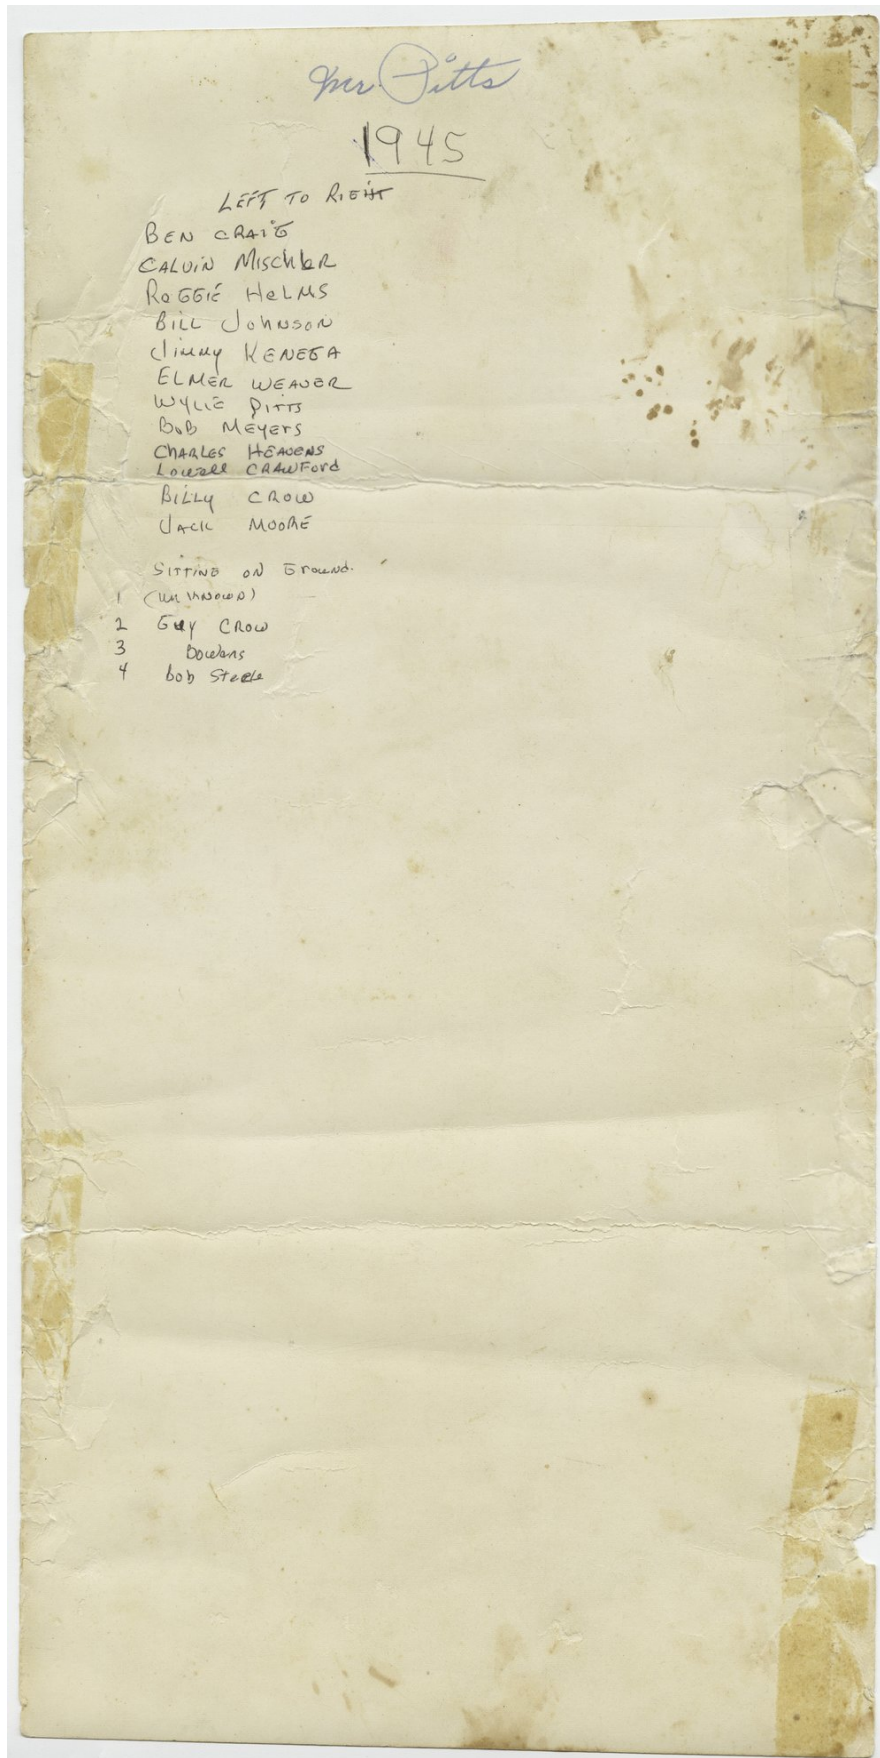 Mr. Pitts
1945
LEFT TO RIGHT
BEN CRAIG
CALVIN MISCHLER
REGGIE HELMS
BILL JOHNSON
JIMMY KENEGA
ELMER WEAVER
WYLIE PITTS
BOB MEYERS
CHARLES HEAVENS
LOWELL CRAWFORD
BILLY CROW
JACK MOORE
SITTING ON GROUND.
1 (UNKNOWN)
2 GUY CROW
3 Bowens
4 Bob Steele